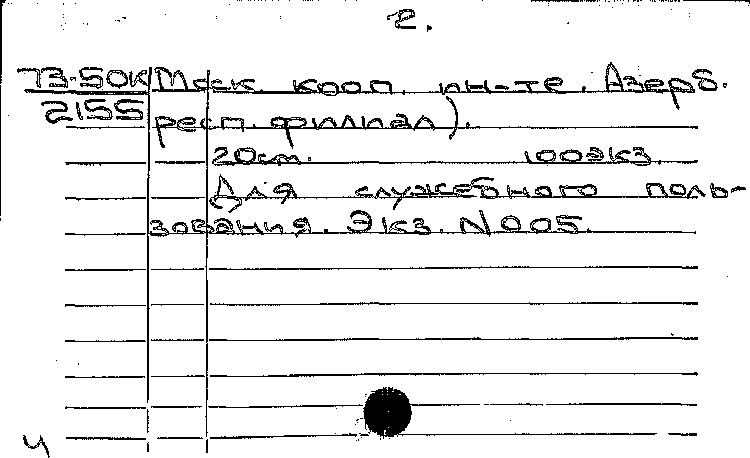 2.
73-50к Моск. кооп. ин-те. Азерб.
2155 респ. филиал).
20см. 100экз.
Для служебного поль-
зования. Экз. N 005.
ч